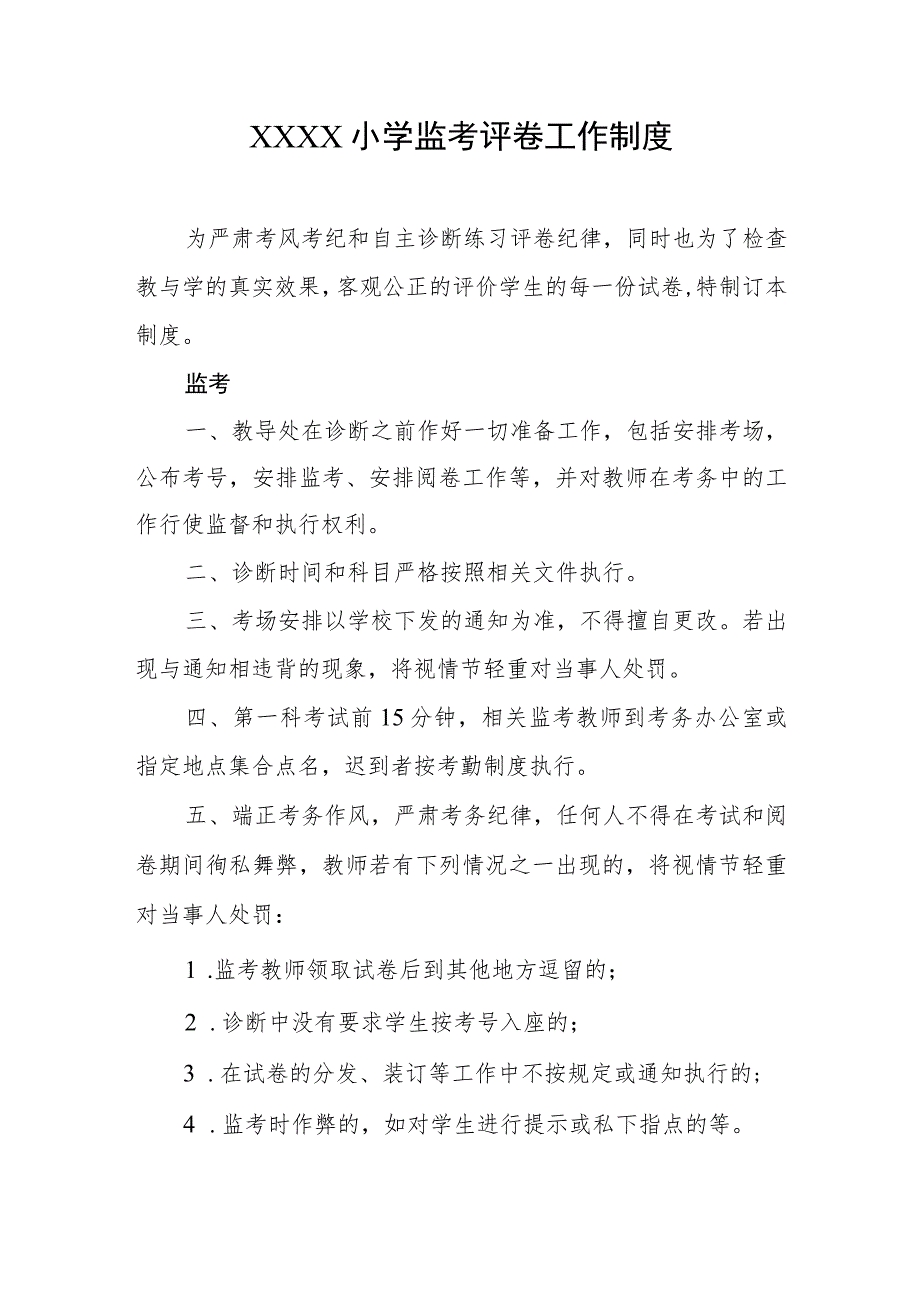 XXXX 小学监考评卷工作制度
为严肃考风考纪和自主诊断练习评卷纪律，同时也为了检查
教与学的真实效果，客观公正的评价学生的每一份试卷,特制订本
制度。
监考
一、教导处在诊断之前作好一切准备工作，包括安排考场，
公布考号，安排监考、安排阅卷工作等，并对教师在考务中的工
作行使监督和执行权利。
二、诊断时间和科目严格按照相关文件执行。
三、考场安排以学校下发的通知为准，不得擅自更改。若出
现与通知相违背的现象，将视情节轻重对当事人处罚。
四、第一科考试前 15 分钟，相关监考教师到考务办公室或
指定地点集合点名，迟到者按考勤制度执行。
五、端正考务作风，严肃考务纪律，任何人不得在考试和阅
卷期间徇私舞弊，教师若有下列情况之一出现的，将视情节轻重
对当事人处罚：
1 .监考教师领取试卷后到其他地方逗留的；
2 .诊断中没有要求学生按考号入座的；
3 .在试卷的分发、装订等工作中不按规定或通知执行的；
4 .监考时作弊的，如对学生进行提示或私下指点的等。